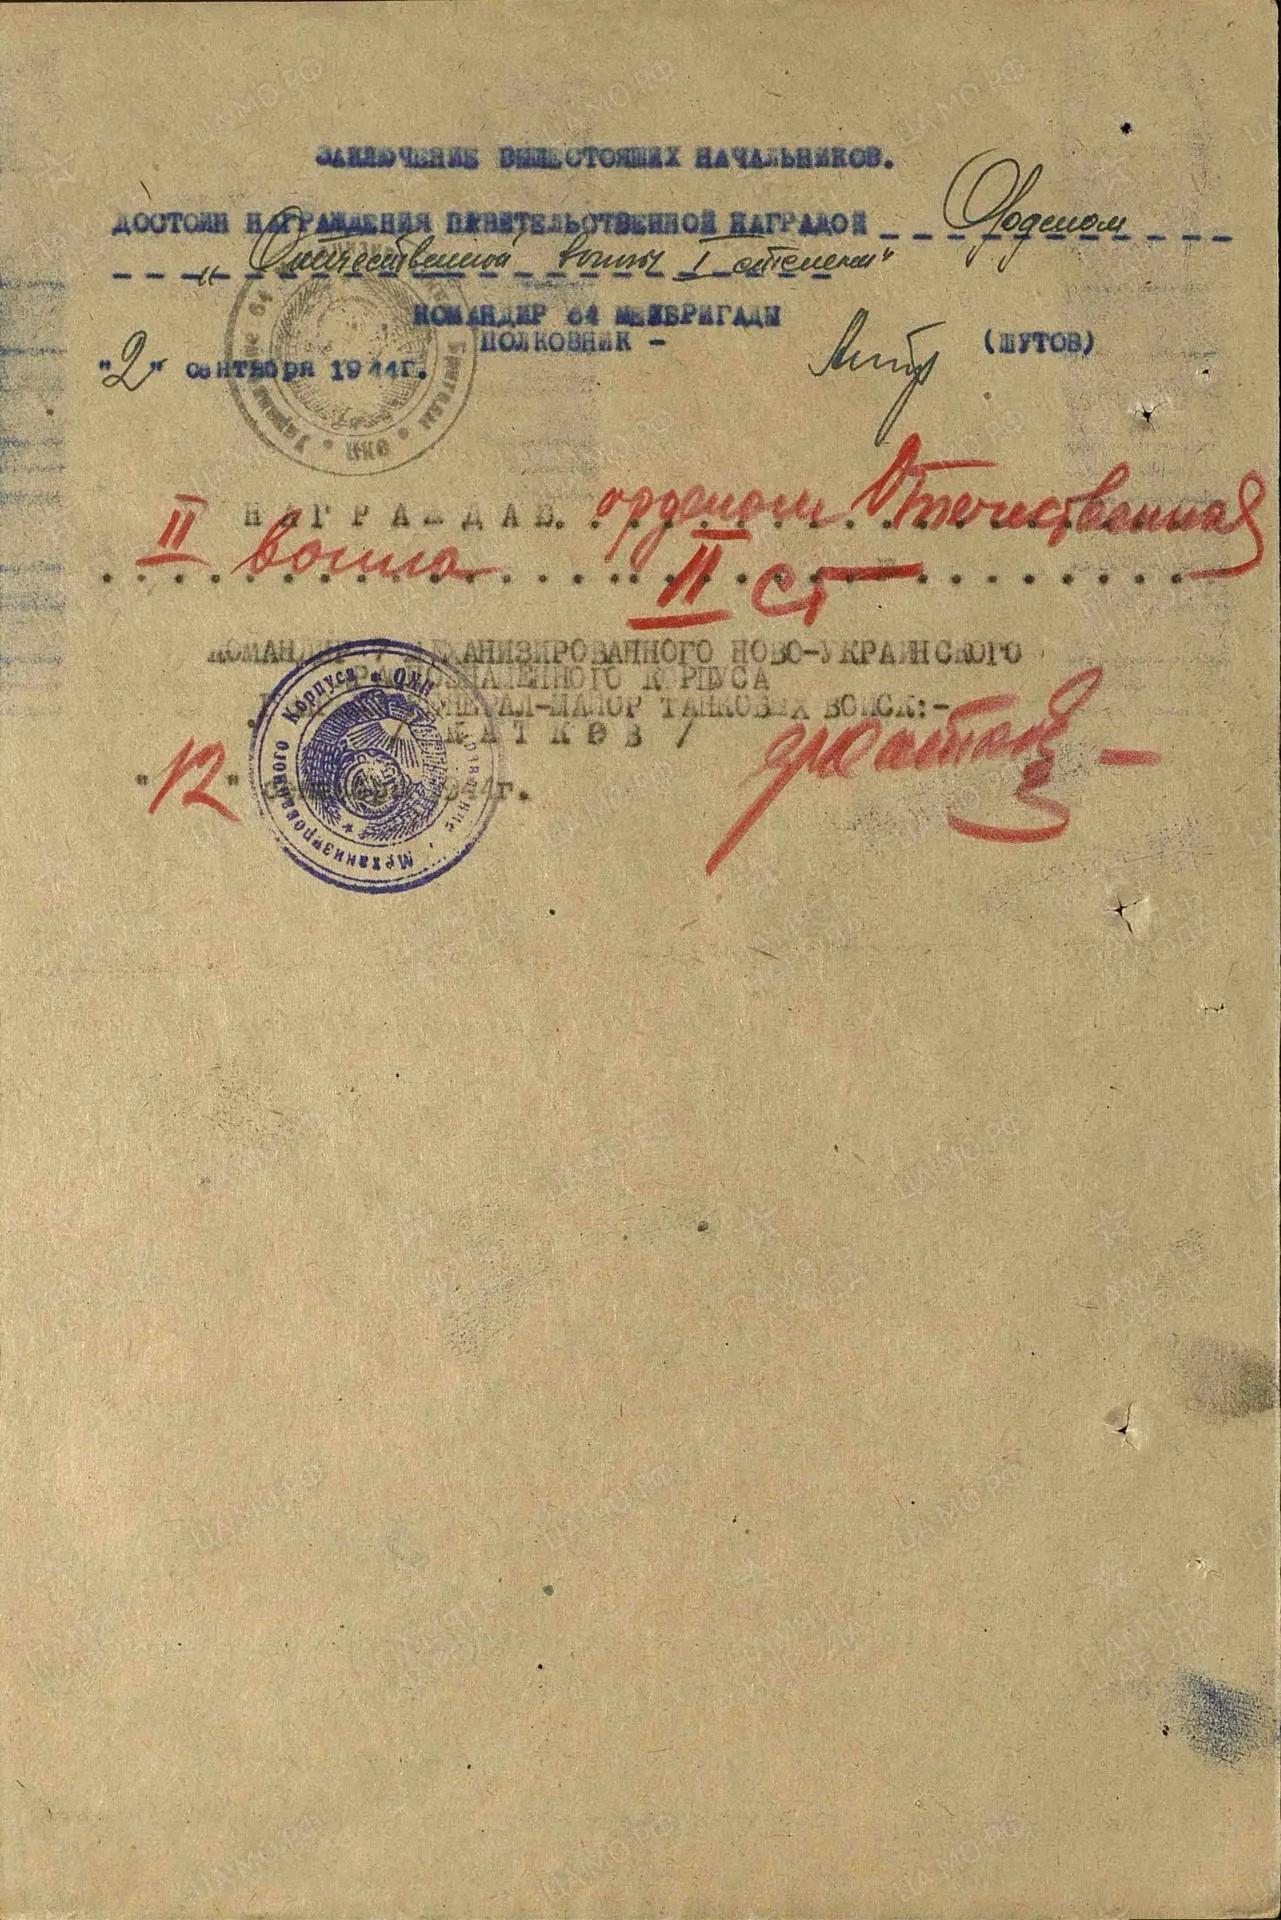 ЗАКЛЮЧЕНИЕ ВЫШЕСТОЯЩИХ НАЧАЛЬНИКОВ.
ДОСТОИН НАГРАЖДЕНИЯ ПРАВИТЕЛЬСТВЕННОЙ НАГРАДОЙ Орденом
„Отечественной войны I степени"
КОМАНДИР 64 МЕХБРИГАДЫ
ПОЛКОВНИК - (ШУТОВ)
"2" сентября 1944г.
НАГРАЖДАЮ. орденом Отечественная
II война II ст
КОМАНДИР 7 МЕХАНИЗИРОВАННОГО НОВО-УКРАИНСКОГО
КРАСНОЗНАМЕННОГО КОРПУСА
ГЕНЕРАЛ-МАЙОР ТАНКОВЫХ ВОЙСК:-
/ КАТКОВ /
"12" 1944г.
Механизированного Корпуса ОКН